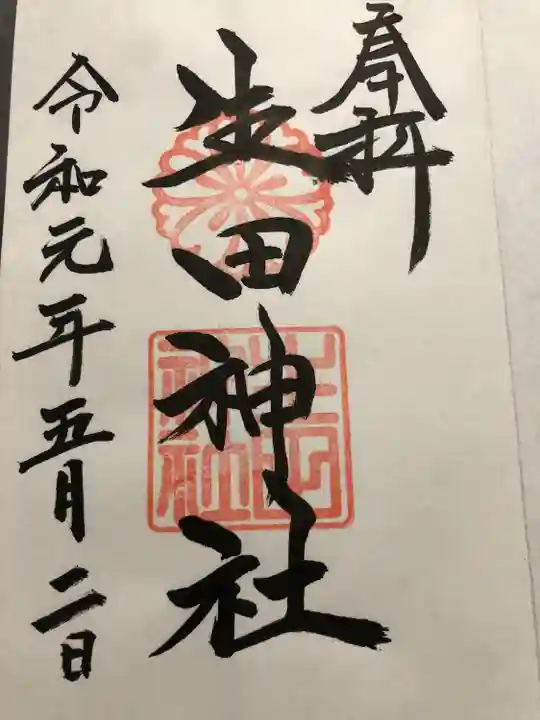 奉拝
生田神社
生田神社
令和元年五月二日